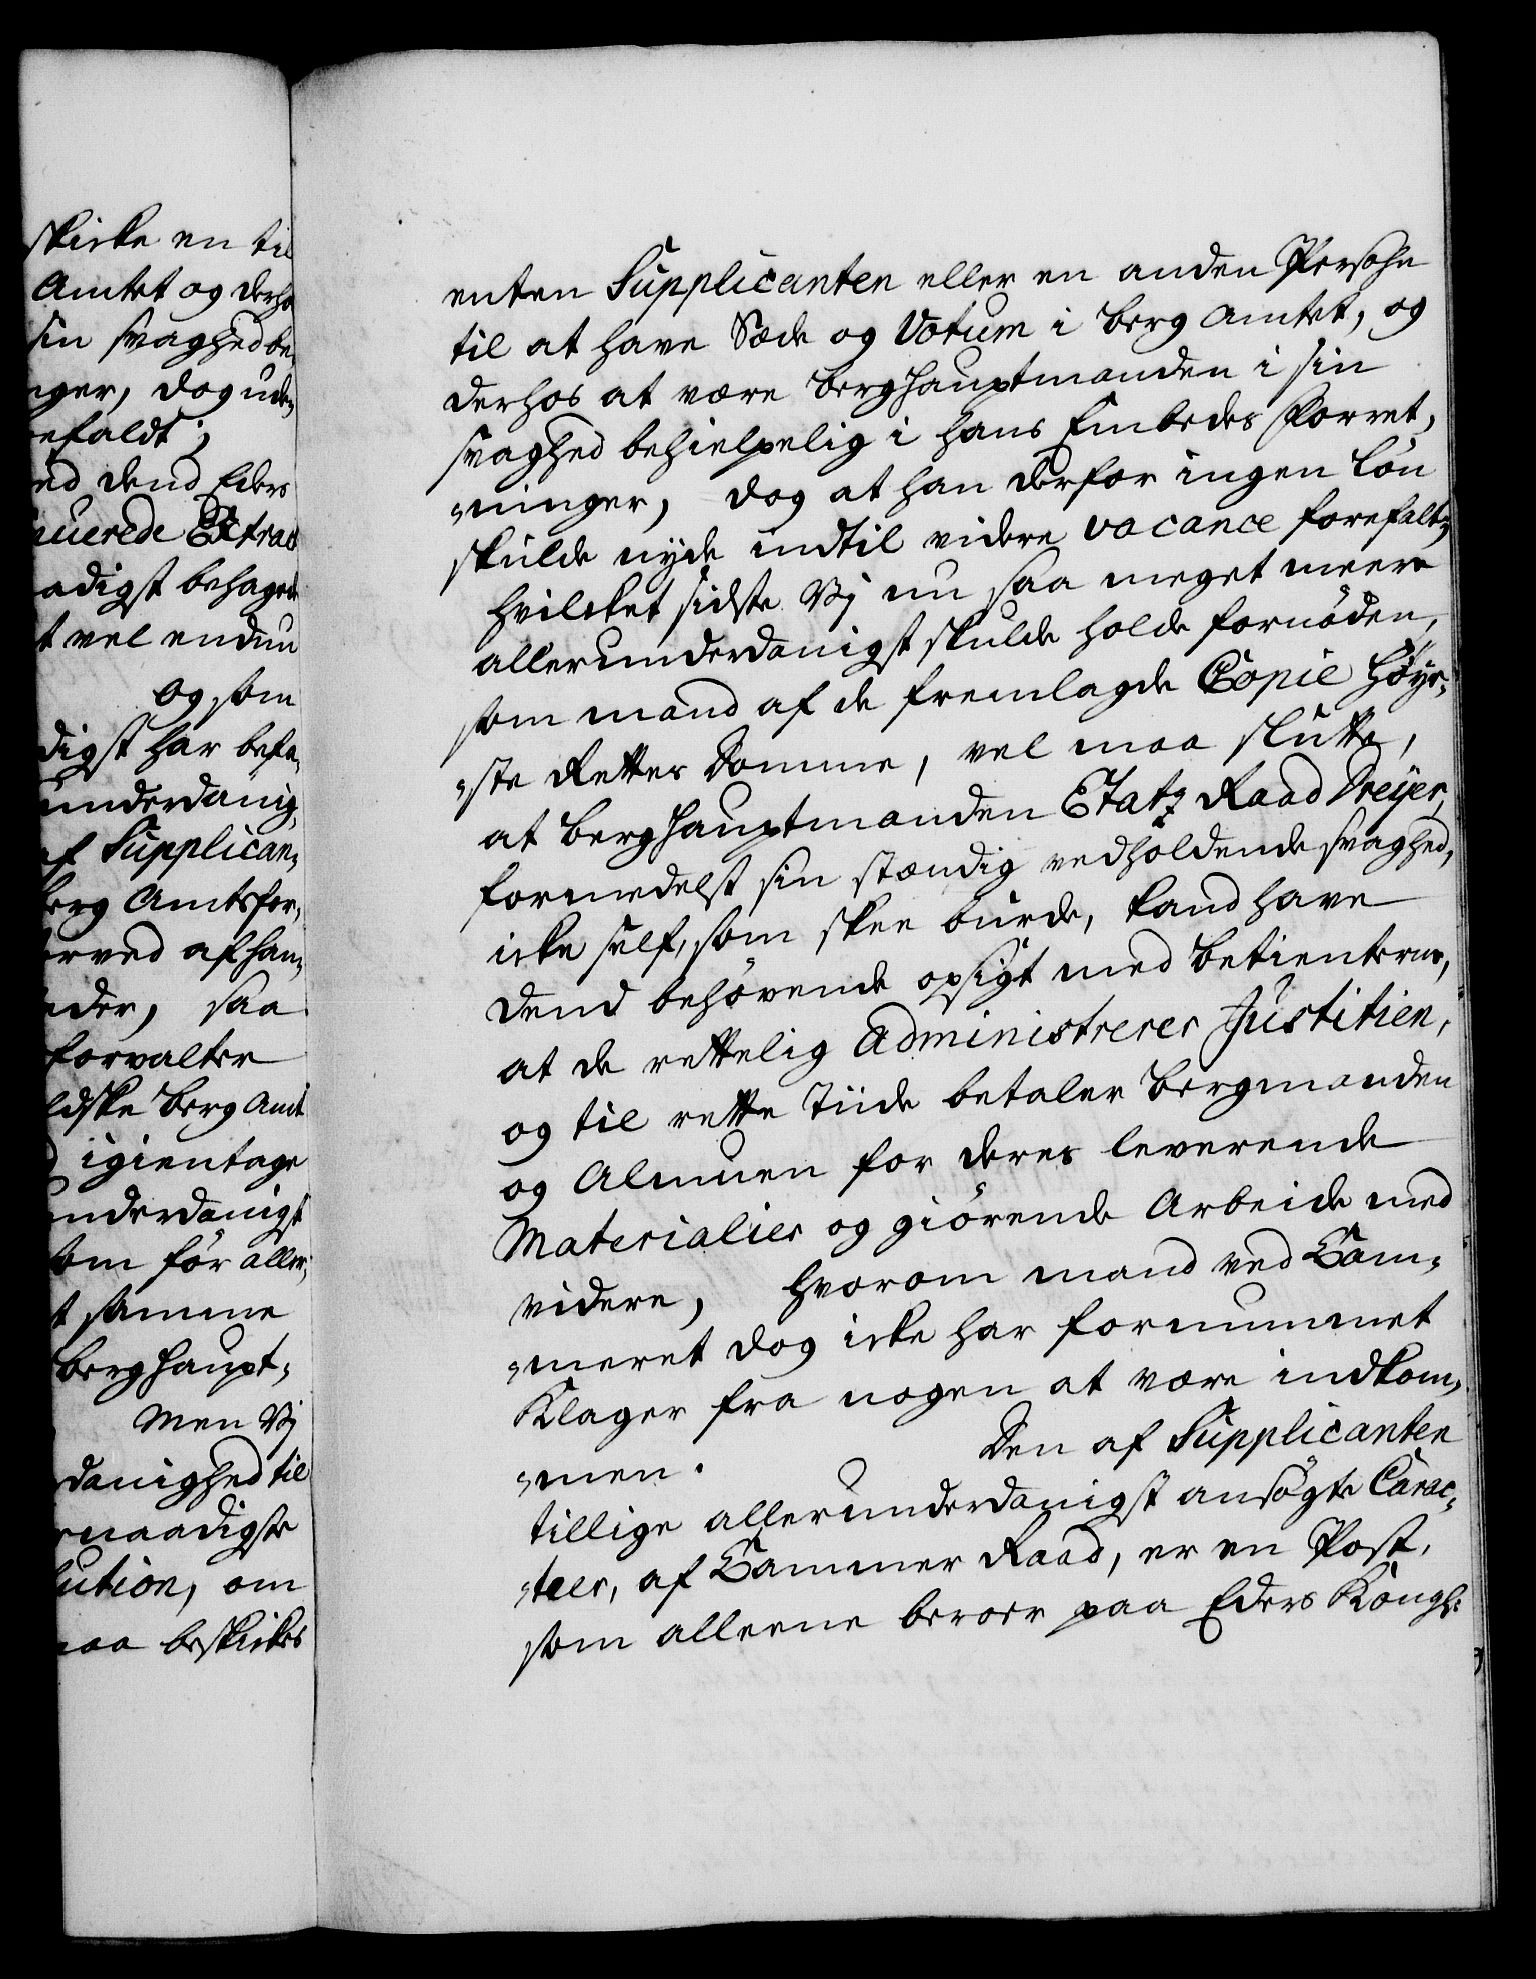 skicke en til
Amtet og derho
sin svaghed be
nger, dog uden
efaldt;
ed dend Eders
nuerede Extract
adigst behaget
t vel endnu
og som
digst har befa,
underdanig,
af Supplican,
berg Amtsfor,
erved afhan,
nder, saa
forvalter
ldske berg Amt
igientage
underdanigst
som før aller,
t samme
berghaupt,
Men Vj
danighed til
naadigste
lution, om
maa beskickes
enten Supplicanten eller en anden Persohn
til at have Sæde og Votum i berg Amtet, og
derhos at være berghauptmanden i sin
svaghed behielpelig i hans Embedes Forret,
"ninger, dog at han derfor ingen løn
skulde nyde indtil videre vacance forefalt,
hvilcket sidste Vj nu saa meget meere
allerunderdanigst skulde holde fornøden,
som mand af de fremlagde Copie Høye,
"ste Rettes Domme, vel maa slutte,
at berghauptmanden Etatz Raad Dreyer,
formedelst sin stændig vedholdende svaghed,
icke self, som skee burde, kand have
dend behøvende opsigt med betienterne,
at de rettelig Administrerer Justitien,
og til rette Tiide betaler bergmanden
og Almuen for deres leverende
Materialier og giørende Arbeide med
videre, hvorom mand ved Cam,
"meret dog icke har fornummet
Klager fra nogen at være indkom,
"men. Den af Supplicanten
tillige allerunderdanigst ansøgte Carac,
"teer, af Cammer Raad, er en Post,
som alleene beroer paa Eders Kongl: